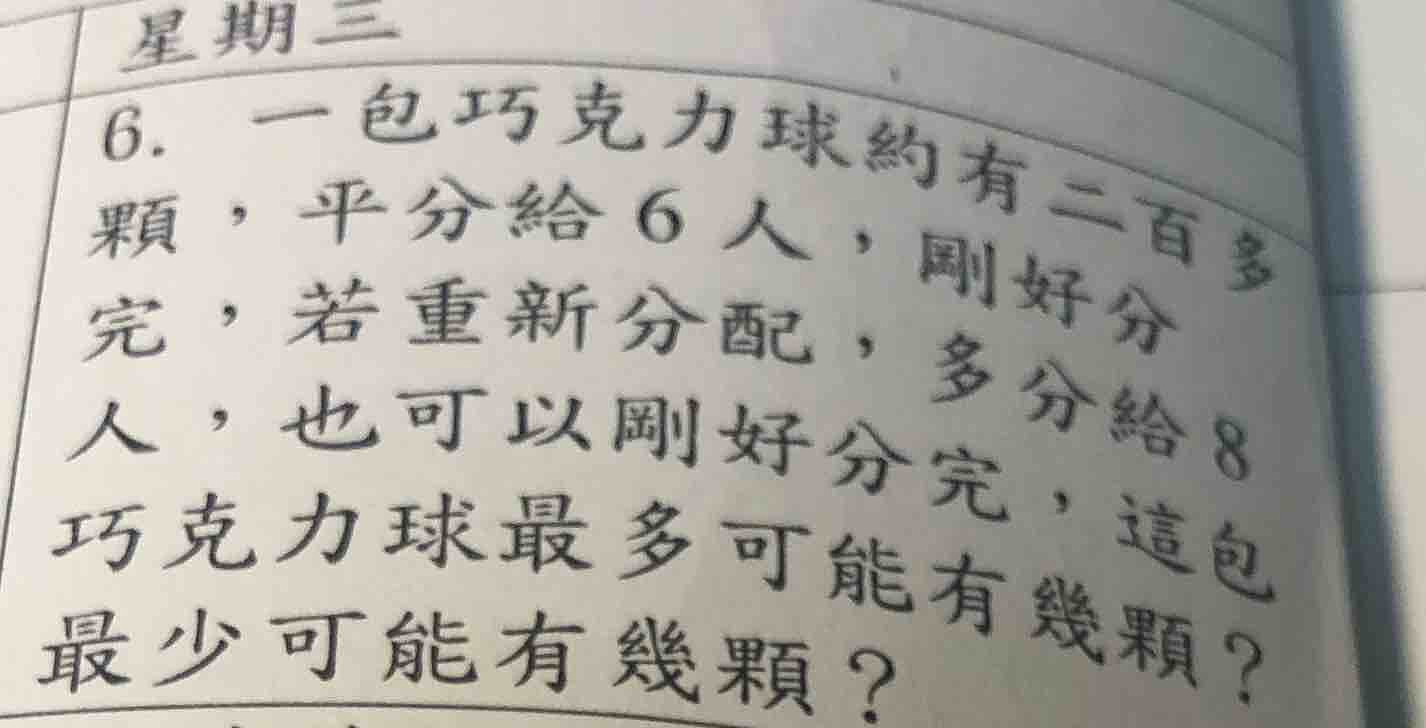 星期三
6. 一包巧克力球約有二百多
顆，平分給6人，剛好分
完，若重新分配，多分給8
人，也可以剛好分完，這包
巧克力球最多可能有幾顆？
最少可能有幾顆？